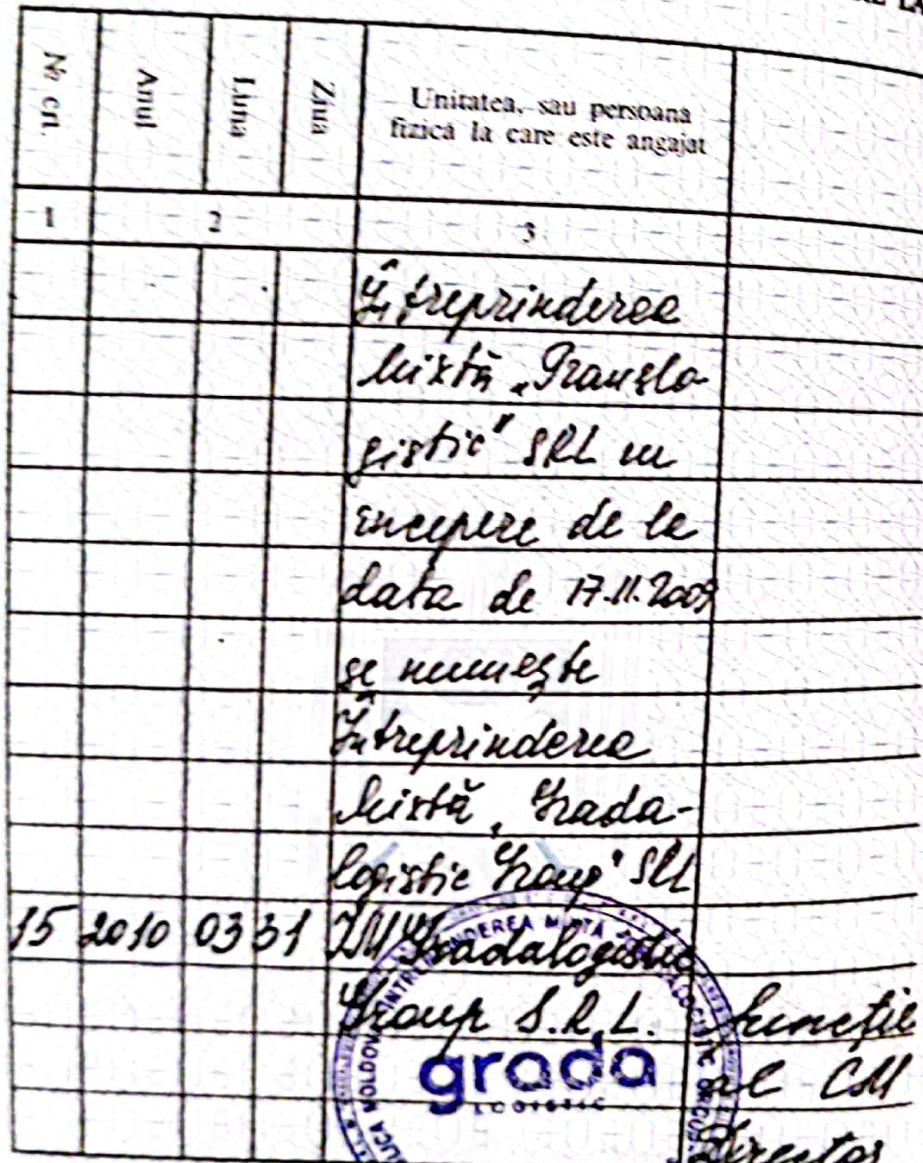 № crt.
Anul
Luna
Ziua
Unitatea, sau persoana
fizică la care este angajat
1
2
3
Întreprinderea
Mixtă „Translo-
gistic" SRL cu
începere de la
data de 17.11.2009
se numește
Întreprinderea
Mixtă „Grada-
logistic Group" SRL
15 2010 03 31 ÎM Gradalogistic
Group S.R.L. funcție
al CM
Director
ÎNTREPRINDEREA MIXTĂ
grada
LOGISTIC